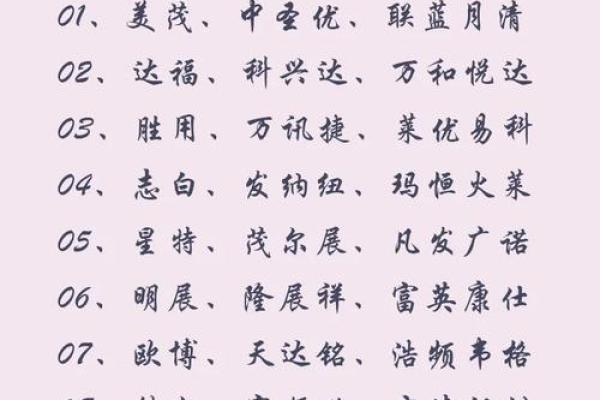 01、美茂、中圣优、联蓝月清
02、达福、科兴达、万和悦达
03、胜用、万讯捷、莱优易科
04、志白、发纳纽、玛恒火莱
05、星特、茂尔展、凡发广诺
06、明展、隆展祥、富英康仕
07、欧博、天达铭、浩频韦格